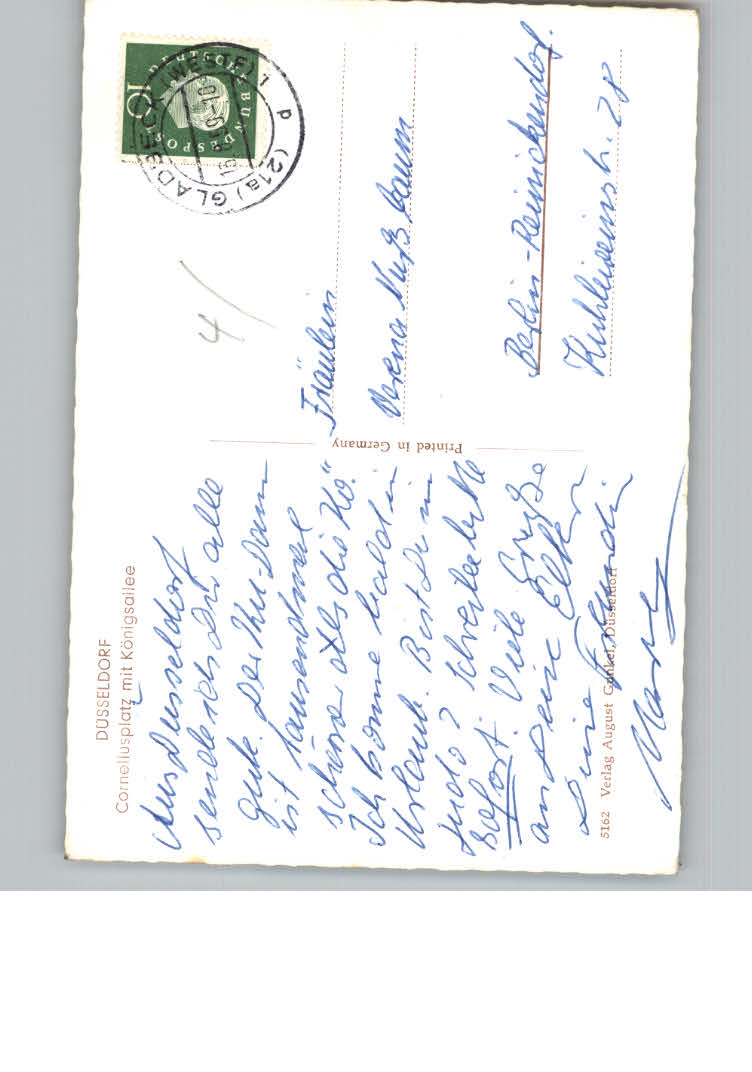 DÜSSELDORF
Corneliusplatz mit Königsallee
Aus Düsseldorf
sende ich Dir alle
gute. Der Ku-Dam
ist tausendmal
schöner als die "Kö."
Ich komme bald in
Urlaub. Bist Du in
? Schreibe bitte
sofort. Viele Grüße
an Deine Eltern
Deine Freundin
5162 Verlag August Gunkel, Düsseldorf
Printed in Germany
DEUTSCHE BUNDESPOST
10
(21a) GLADBECK (WESTF) 1
p
4/
Fräulein
Verena Nußbaum
Berlin-Reinickendorf.
Kühleweinstr. 28